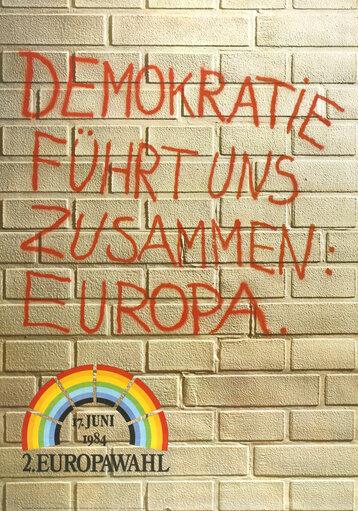 DEMOKRATIE
FÜHRT UNS
ZUSAMMEN:
EUROPA.
17. JUNI
1984
2. EUROPAWAHL